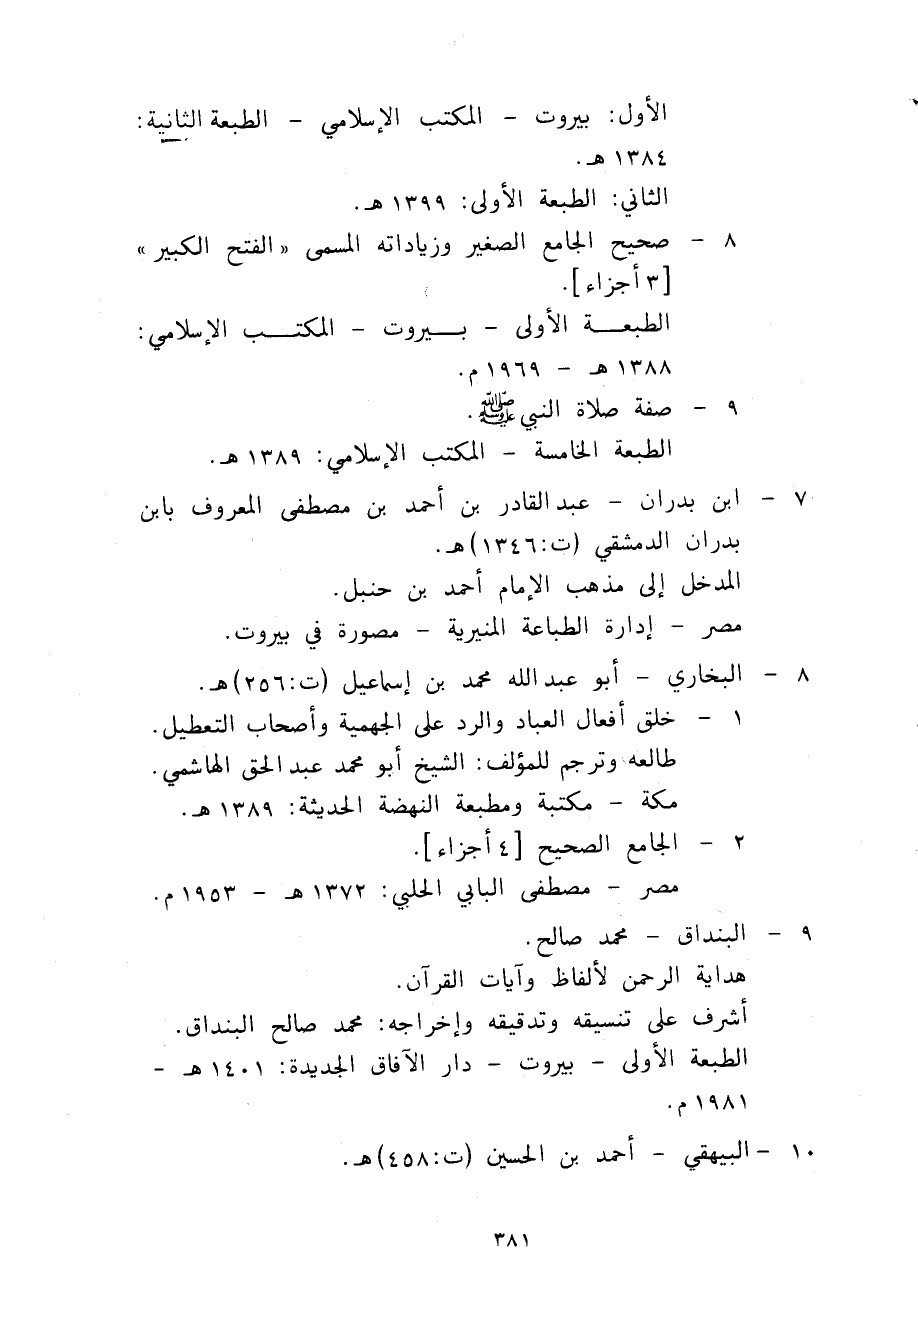 الأول: بيروت - المكتب الإسلامي - الطبعة الثانية:
١٣٨٤ هـ.
الثاني: الطبعة الأولى: ١٣٩٩ هـ.
٨ - صحيح الجامع الصغير وزياداته المسمى «الفتح الكبير»
[٣ أجزاء].
الطبعــة الأولى - بــيروت - المكتــب الإسلامي:
١٣٨٨ هـ - ١٩٦٩ م.
٩ - صفة صلاة النبي ﷺ.
الطبعة الخامسة - المكتب الإسلامي: ١٣٨٩ هـ.
٧ - ابن بدران - عبد القادر بن أحمد بن مصطفى المعروف بابن
بدران الدمشقي (ت: ١٣٤٦) هـ.
المدخل إلى مذهب الإمام أحمد بن حنبل.
مصر - إدارة الطباعة المنيرية - مصورة في بيروت.
٨ - البخاري - أبو عبد الله محمد بن إسماعيل (ت: ٢٥٦) هـ.
١ - خلق أفعال العباد والرد على الجهمية وأصحاب التعطيل.
طالعه وترجم للمؤلف: الشيخ أبو محمد عبد الحق الهاشمي.
مكة - مكتبة ومطبعة النهضة الحديثة: ١٣٨٩ هـ.
٢ - الجامع الصحيح [٤ أجزاء].
مصر - مصطفى البابي الحلبي: ١٣٧٢ هـ - ١٩٥٣ م.
٩ - البنداق - محمد صالح.
هداية الرحمن لألفاظ وآيات القرآن.
أشرف على تنسيقه وتدقيقه وإخراجه: محمد صالح البنداق.
الطبعة الأولى - بيروت - دار الآفاق الجديدة: ١٤٠١ هـ -
١٩٨١ م.
١٠ - البيهقي - أحمد بن الحسين (ت: ٤٥٨) هـ.
٣٨١